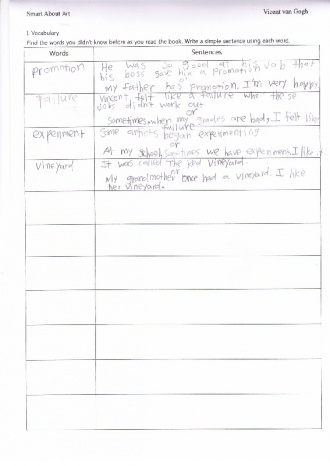 Smart About Art
Vicent van Gogh
1 Vocabulary
Find the words you didn't know before as you read the book. Write a simple sentence using each word.
Words
Sentences
promotion
He was so good at his job that
his boss gave him a promotion
or
my father has promotion. I'm very happy
Failure
Vincent felt like a failure when these
jobs didn't work out
or
Sometimes, when my grades are bad, I felt like
failure
experiment
Some artists began experimenting
or
At my school sometimes we have experiment. I like
Vineyard
It was called The Red Vineyard.
or
My grandmother once had a vineyard. I like
her vineyard.